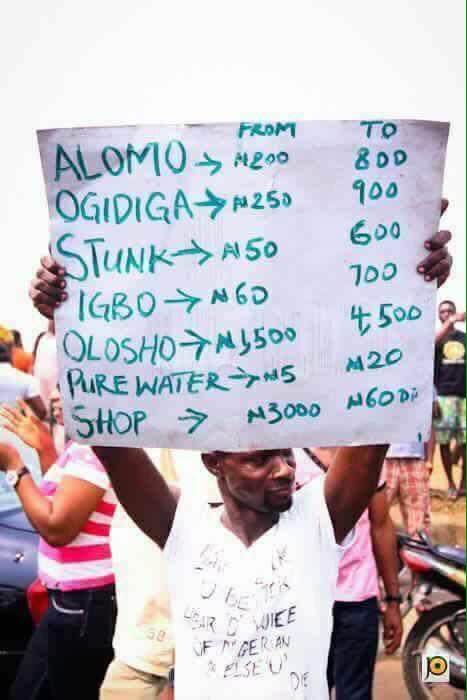 FROM TO
ALOMO → ₦200 800
OGIDIGA → ₦250 900
STUNK → ₦50 600
IGBO → ₦60 700
OLOSHO → ₦1,500 4,500
PURE WATER → ₦5 ₦20
SHOP → ₦3000 ₦60
OF NIGERIAN
ELSE U
DIE